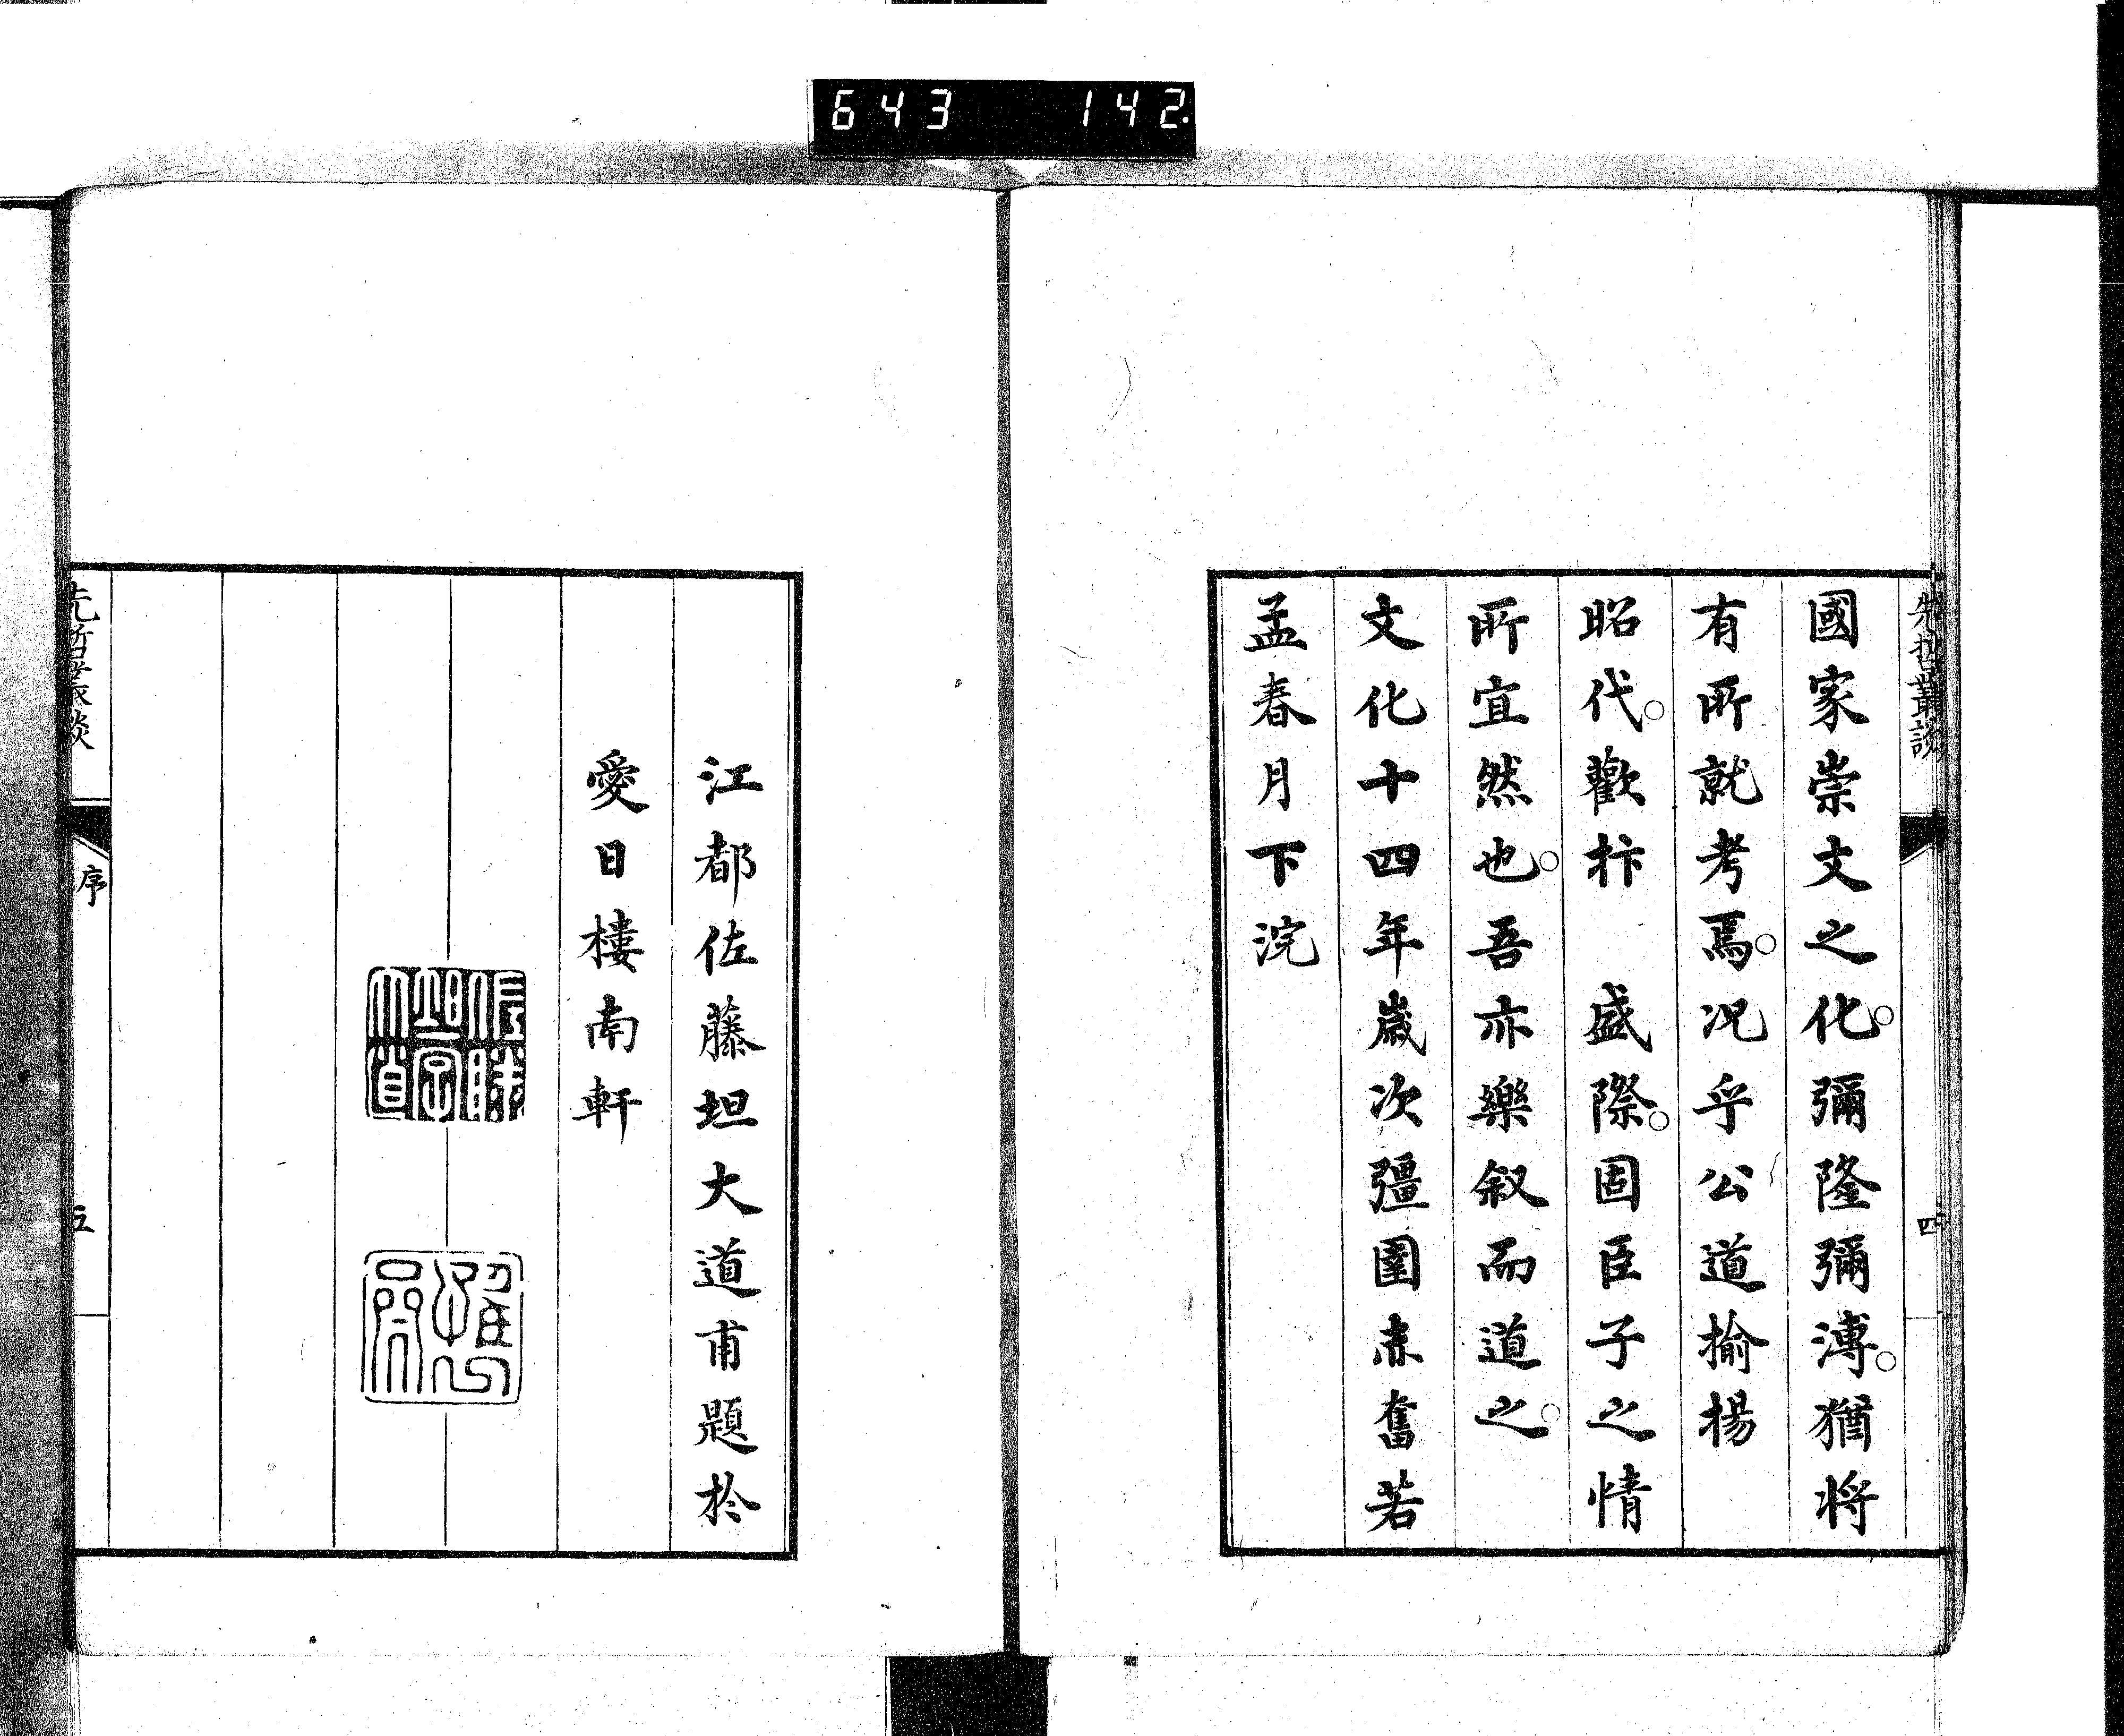 643 142.
先哲叢談
四
國家崇文之化。彌隆彌溥。猶將
有所就考焉。况乎公道揄揚
昭代。歡抃 盛際。固臣子之情
所宜然也。吾亦樂叙而道之。
文化十四年歲次彊圉赤奮若
孟春月下浣
江都佐藤坦大道甫題於
愛日樓南軒
佐藤坦字大道
先哲叢談
序
五